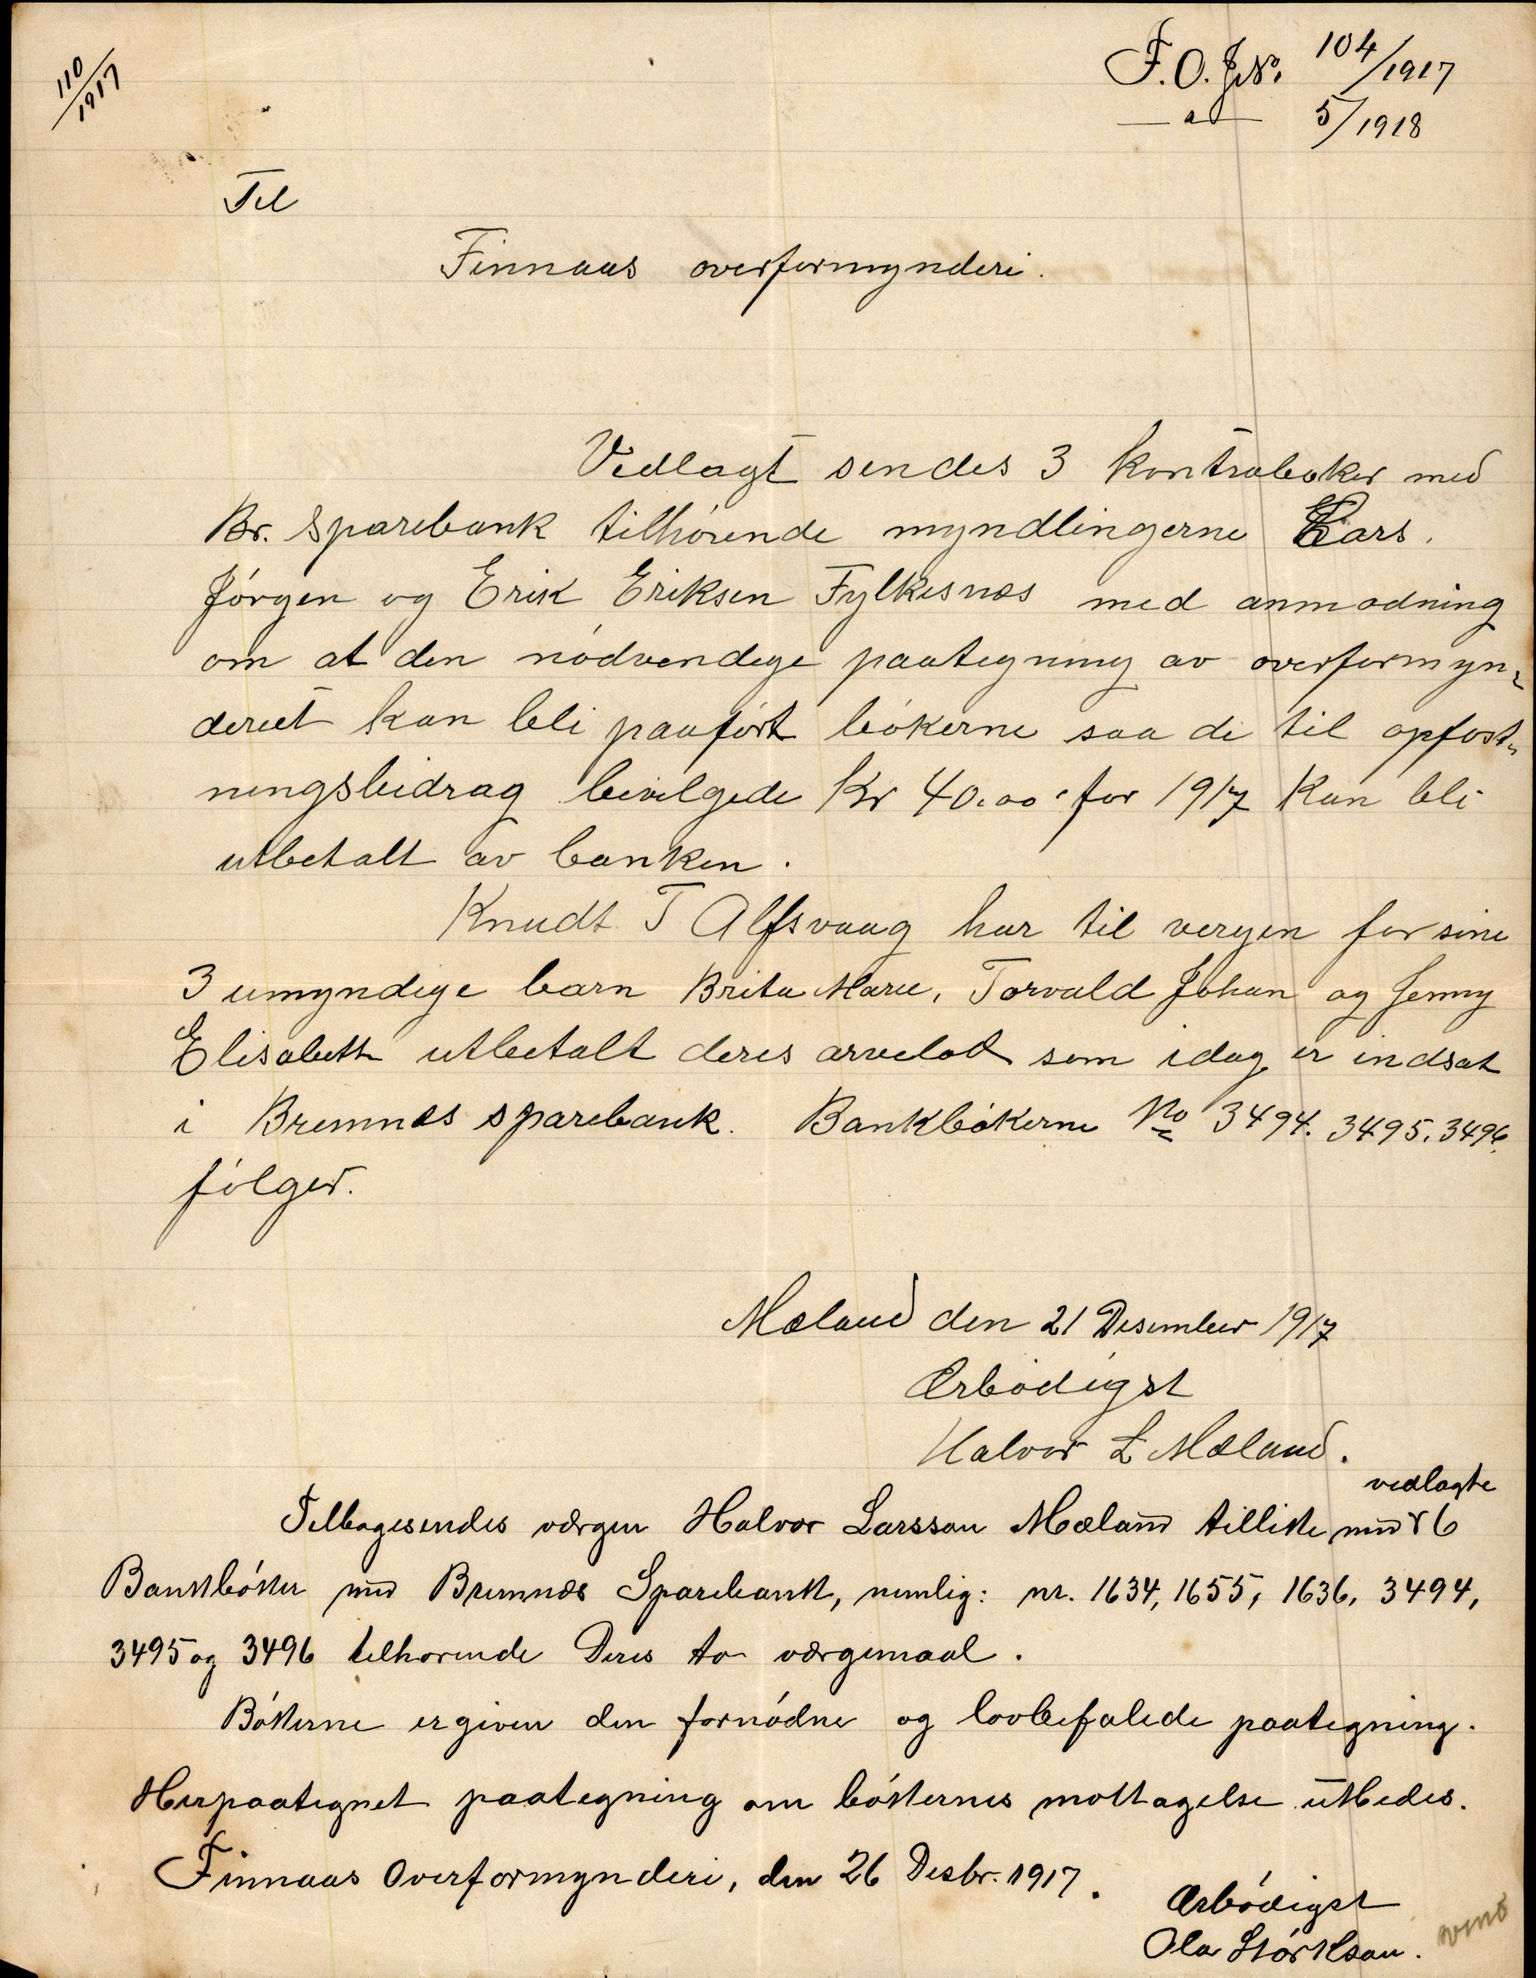 110/1917
F.O.J.No. 104/1917
— a — 5/1918
Til
Finnaas overformynderi.
Vedlagt sendes 3 kontrabøker med
Br. sparebank tilhørende myndlingerne Lars.
Jørgen og Erik Eriksen Fylkesnæs med anmodning
om at den nødvendige paategning av overformyn-
deriet kan bli paaført bøkerne saa de til opfost-
ningsbidrag bevilgede Kr 40.00 for 1917 kan bli
utbetalt av banken.
Knudt T Alfsvaag har til vergen for sine
3 umyndige barn Brita Marie, Torvald Johan og Jenny
Elisabeth utbetalt deres arvelod som idag er indsat
i Bremnes sparebank. Bankbøkerne No 3494. 3495. 3496.
følger.
Mæland den 21 Desember 1917
Ærbødigst
Halvor L Mæland.
vedlagte
Tilbagesendes værgen Halvor Larsson Mæland tillike med 6
Bankbøker med Bremnæs Sparebank, nemlig: nr. 1634, 1655, 1636, 3494,
3495 og 3496 tilhørende Deres to værgemaal.
Bøkerne er given den fornødne og lovbefalede paategning.
Herpaategnet paategning om bøkernes mottagelse utbedes.
Finnaas Overformynderi, den 26 Desbr. 1917.
Ærbødigst
Ola Størkson.